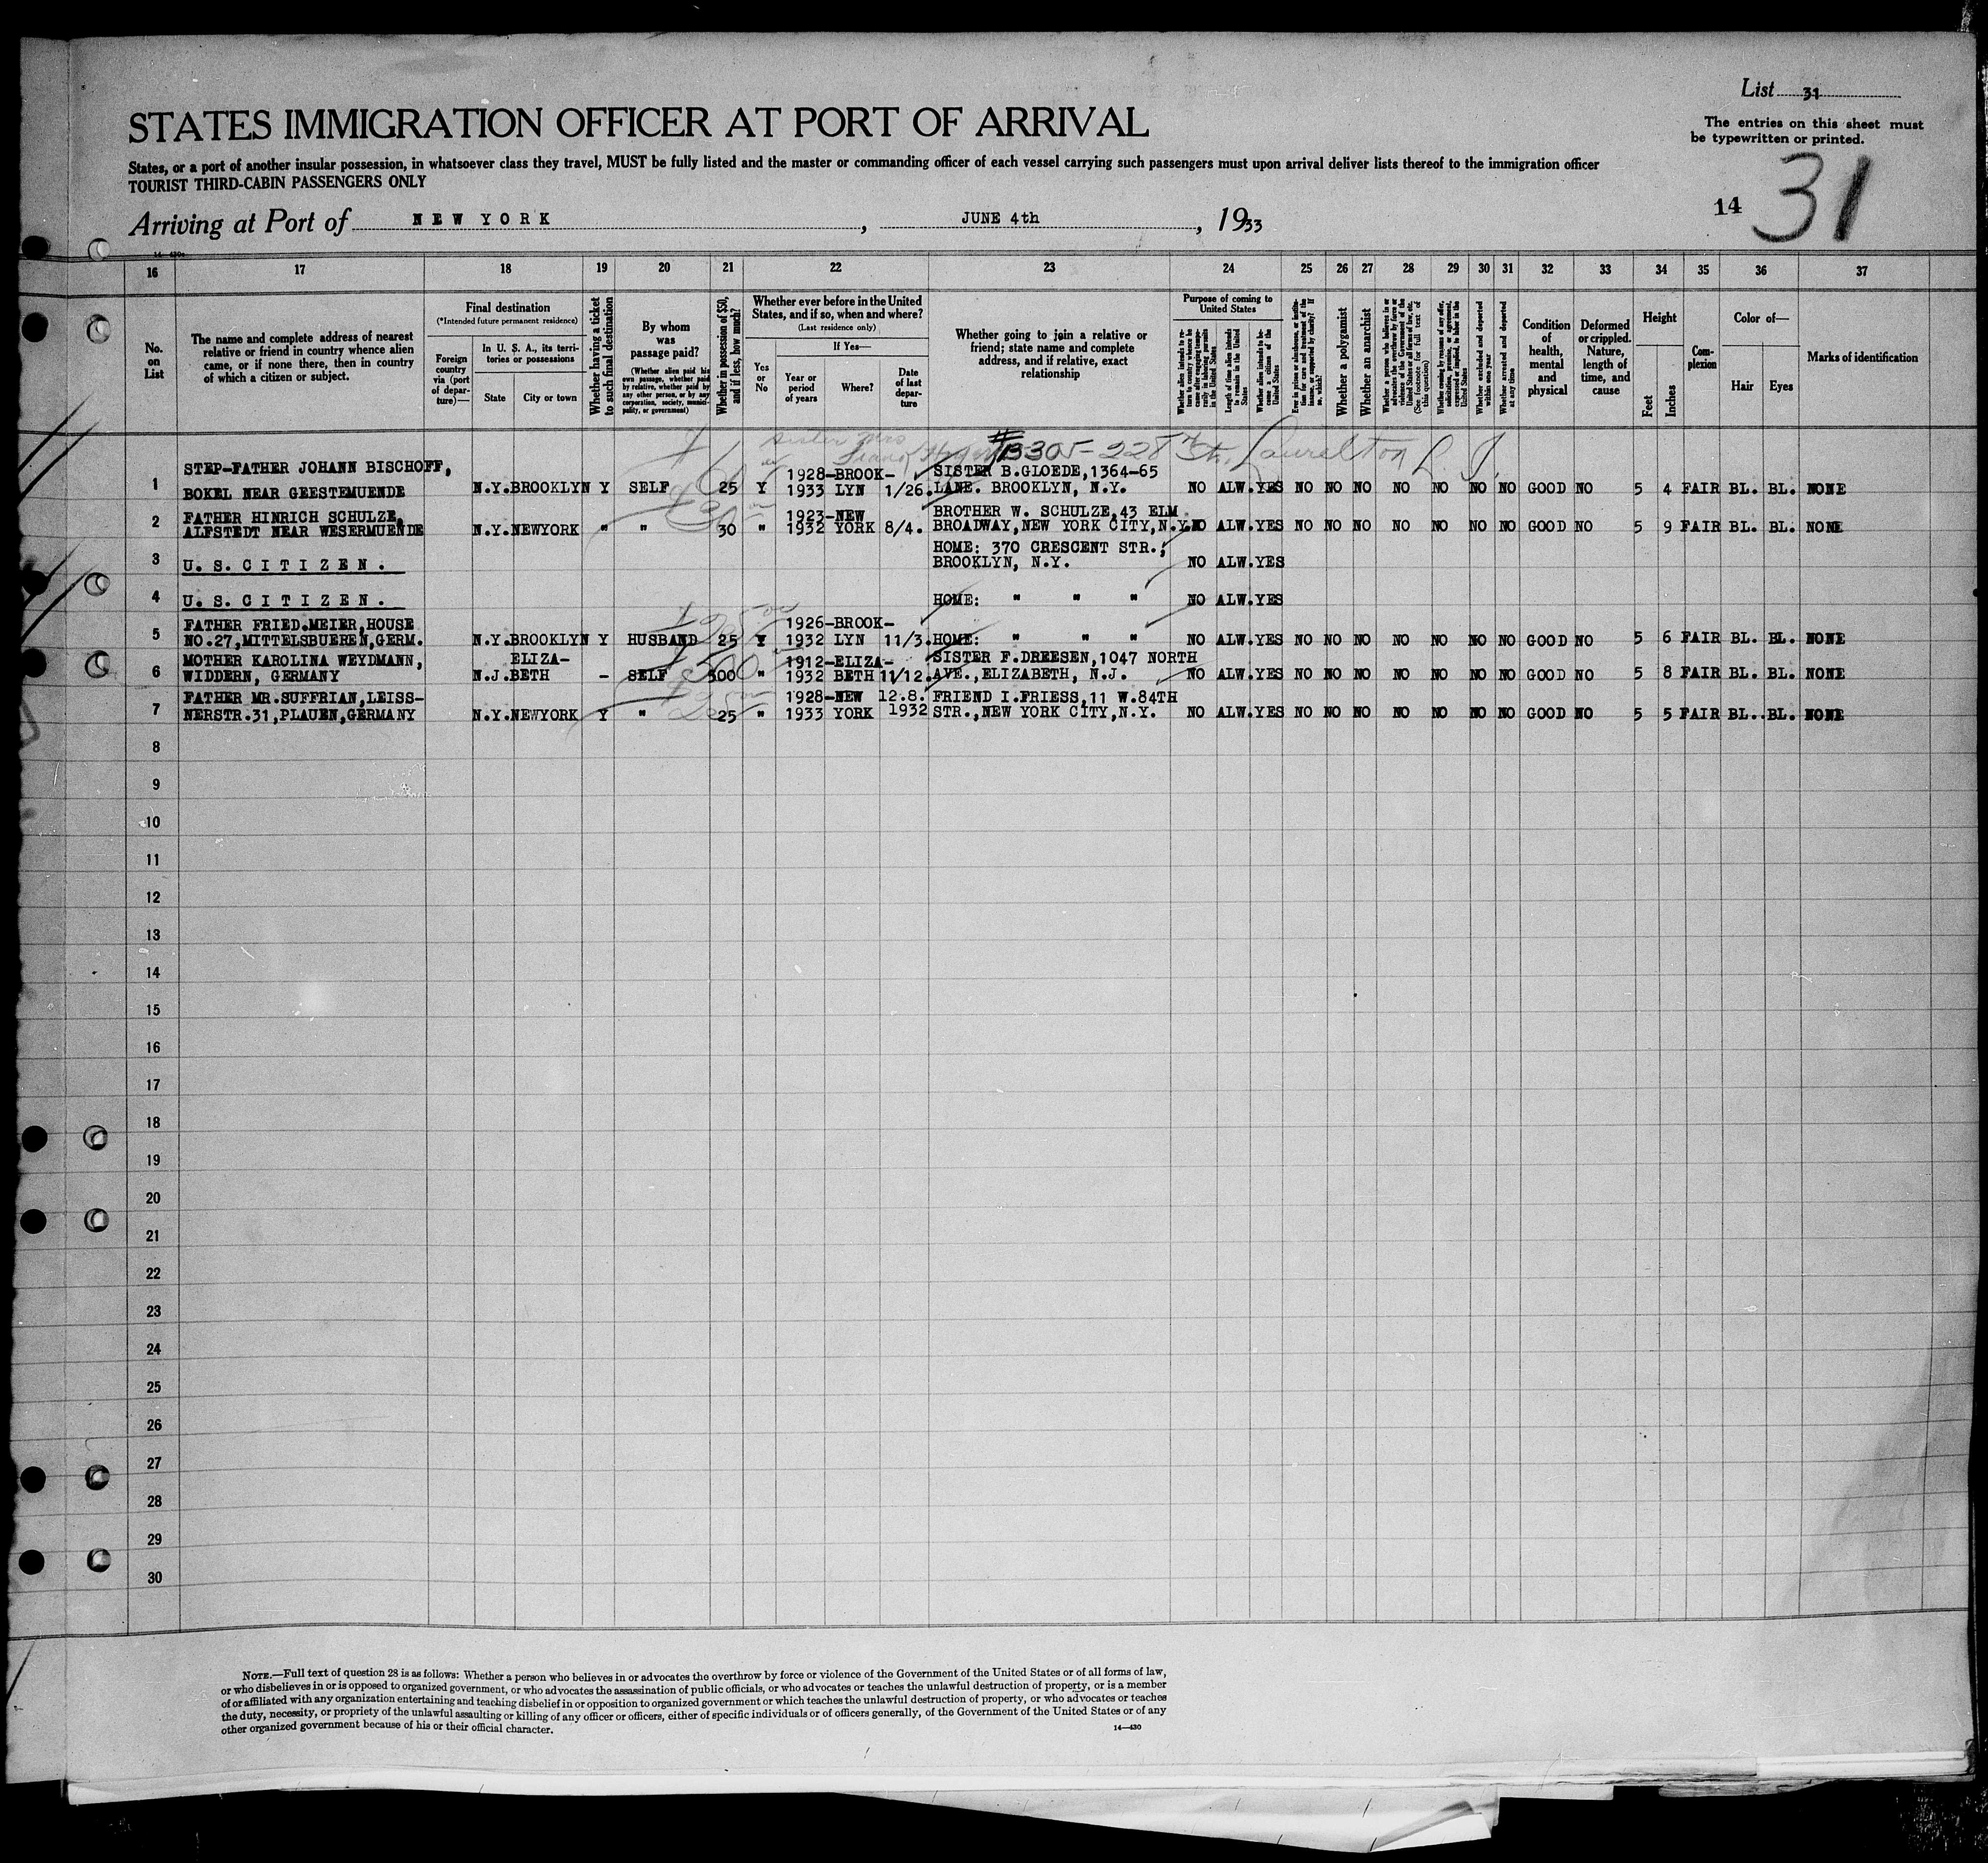 List 31
The entries on this sheet must
be typewritten or printed.
STATES IMMIGRATION OFFICER AT PORT OF ARRIVAL
States, or a port of another insular possession, in whatsoever class they travel, MUST be fully listed and the master or commanding officer of each vessel carrying such passengers must upon arrival deliver lists thereof to the immigration officer
TOURIST THIRD-CABIN PASSENGERS ONLY
14 31
Arriving at Port of NEW YORK, JUNE 4th, 1933
16 17 18 19 20 21 22 23 24 25 26 27 28 29 30 31 32 33 34 35 36 37
No. on List
The name and complete address of nearest
relative or friend in country whence alien
came, or if none there, then in country
of which a citizen or subject.
Final destination
(*Intended future permanent residence)
Foreign country via (port of departure)—
In U. S. A., its territories or possessions
State
City or town
Whether having a ticket to such final destination
By whom was passage paid?
(Whether alien paid his own passage, whether paid by relative, whether paid by any other person, or by any corporation, society, municipality, or government)
Whether in possession of $50, and if less, how much?
Whether ever before in the United States, and if so, when and where?
(Last residence only)
Yes or No
If Yes—
Year or period of years
Where?
Date of last departure
Whether going to join a relative or
friend; state name and complete
address, and if relative, exact
relationship
Purpose of coming to United States
Length of time alien intends to remain in the United States
Whether alien intends to become a citizen of the United States
Whether a polygamist
Whether an anarchist
Whether excluded and deported within one year
Whether arrested and deported at any time
Condition of health, mental and physical
Deformed or crippled. Nature, length of time, and cause
Height
Feet
Inches
Complexion
Color of—
Hair
Eyes
Marks of identification
Sister Mrs #133-05-228 St. Laurelton L. I.
1 STEP-FATHER JOHANN BISCHOFF, BOKEL NEAR GEESTEMUENDE N.Y. BROOKLYN Y SELF 25 Y 1928-1933 BROOKLYN 1/26. SISTER B.GLOEDE,1364-65 LANE. BROOKLYN, N.Y. NO ALW. YES NO NO NO NO NO NO NO GOOD NO 5 4 FAIR BL. BL. NONE
2 FATHER HINRICH SCHULZE, ALFSTEDT NEAR WESERMUENDE N.Y. NEWYORK " " 30 " 1923-1932 NEW YORK 8/4. BROTHER W. SCHULZE,43 ELM BROADWAY,NEW YORK CITY,N.Y. NO ALW. YES NO NO NO NO NO NO NO GOOD NO 5 9 FAIR BL. BL. NONE
3 U. S. C I T I Z E N . HOME: 370 CRESCENT STR., BROOKLYN, N.Y. NO ALW. YES
4 U. S. C I T I Z E N . HOME: " " " NO ALW. YES
5 FATHER FRIED.MEIER,HOUSE NO.27,MITTELSBUEREN,GERM. N.Y. BROOKLYN Y HUSBAND 25 Y 1926-1932 BROOKLYN 11/3. HOME: " " " NO ALW. YES NO NO NO NO NO NO NO GOOD NO 5 6 FAIR BL. BL. NONE
6 MOTHER KAROLINA WEYDMANN, WIDDERN, GERMANY N.J. ELIZA-BETH - SELF 500 " 1912-1932 ELIZA-BETH 11/12. SISTER F.DREESEN,1047 NORTH AVE.,ELIZABETH, N.J. NO ALW. YES NO NO NO NO NO NO NO GOOD NO 5 8 FAIR BL. BL. NONE
7 FATHER MR.SUFFRIAN,LEISS-NERSTR.31,PLAUEN,GERMANY N.Y. NEWYORK Y " 25 " 1928-1933 NEW YORK 12.8. 1932 FRIEND I.FRIESS,11 W.84TH STR.,NEW YORK CITY,N.Y. NO ALW. YES NO NO NO NO NO NO NO GOOD NO 5 5 FAIR BL. BL. NONE
8
9
10
11
12
13
14
15
16
17
18
19
20
21
22
23
24
25
26
27
28
29
30
NOTE.—Full text of question 28 is as follows: Whether a person who believes in or advocates the overthrow by force or violence of the Government of the United States or of all forms of law,
or who disbelieves in or is opposed to organized government, or who advocates the assassination of public officials, or who advocates or teaches the unlawful destruction of property, or is a member
of or affiliated with any organization entertaining and teaching disbelief in or opposition to organized government or which teaches the unlawful destruction of property, or who advocates or teaches
the duty, necessity, or propriety of the unlawful assaulting or killing of any officer or officers, either of specific individuals or of officers generally, of the Government of the United States or of any
other organized government because of his or their official character.
14—430